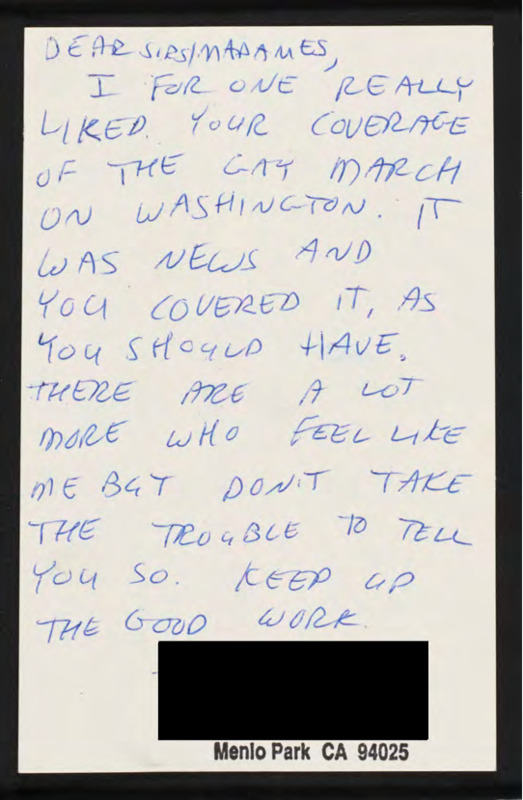 DEAR SIRS/MADAMES,
I FOR ONE REALLY
LIKED YOUR COVERAGE
OF THE GAY MARCH
ON WASHINGTON. IT
WAS NEWS AND
YOU COVERED IT, AS
YOU SHOULD HAVE.
THERE ARE A LOT
MORE WHO FEEL LIKE
ME BUT DON'T TAKE
THE TROUBLE TO TELL
YOU SO. KEEP UP
THE GOOD WORK.
Menlo Park CA 94025